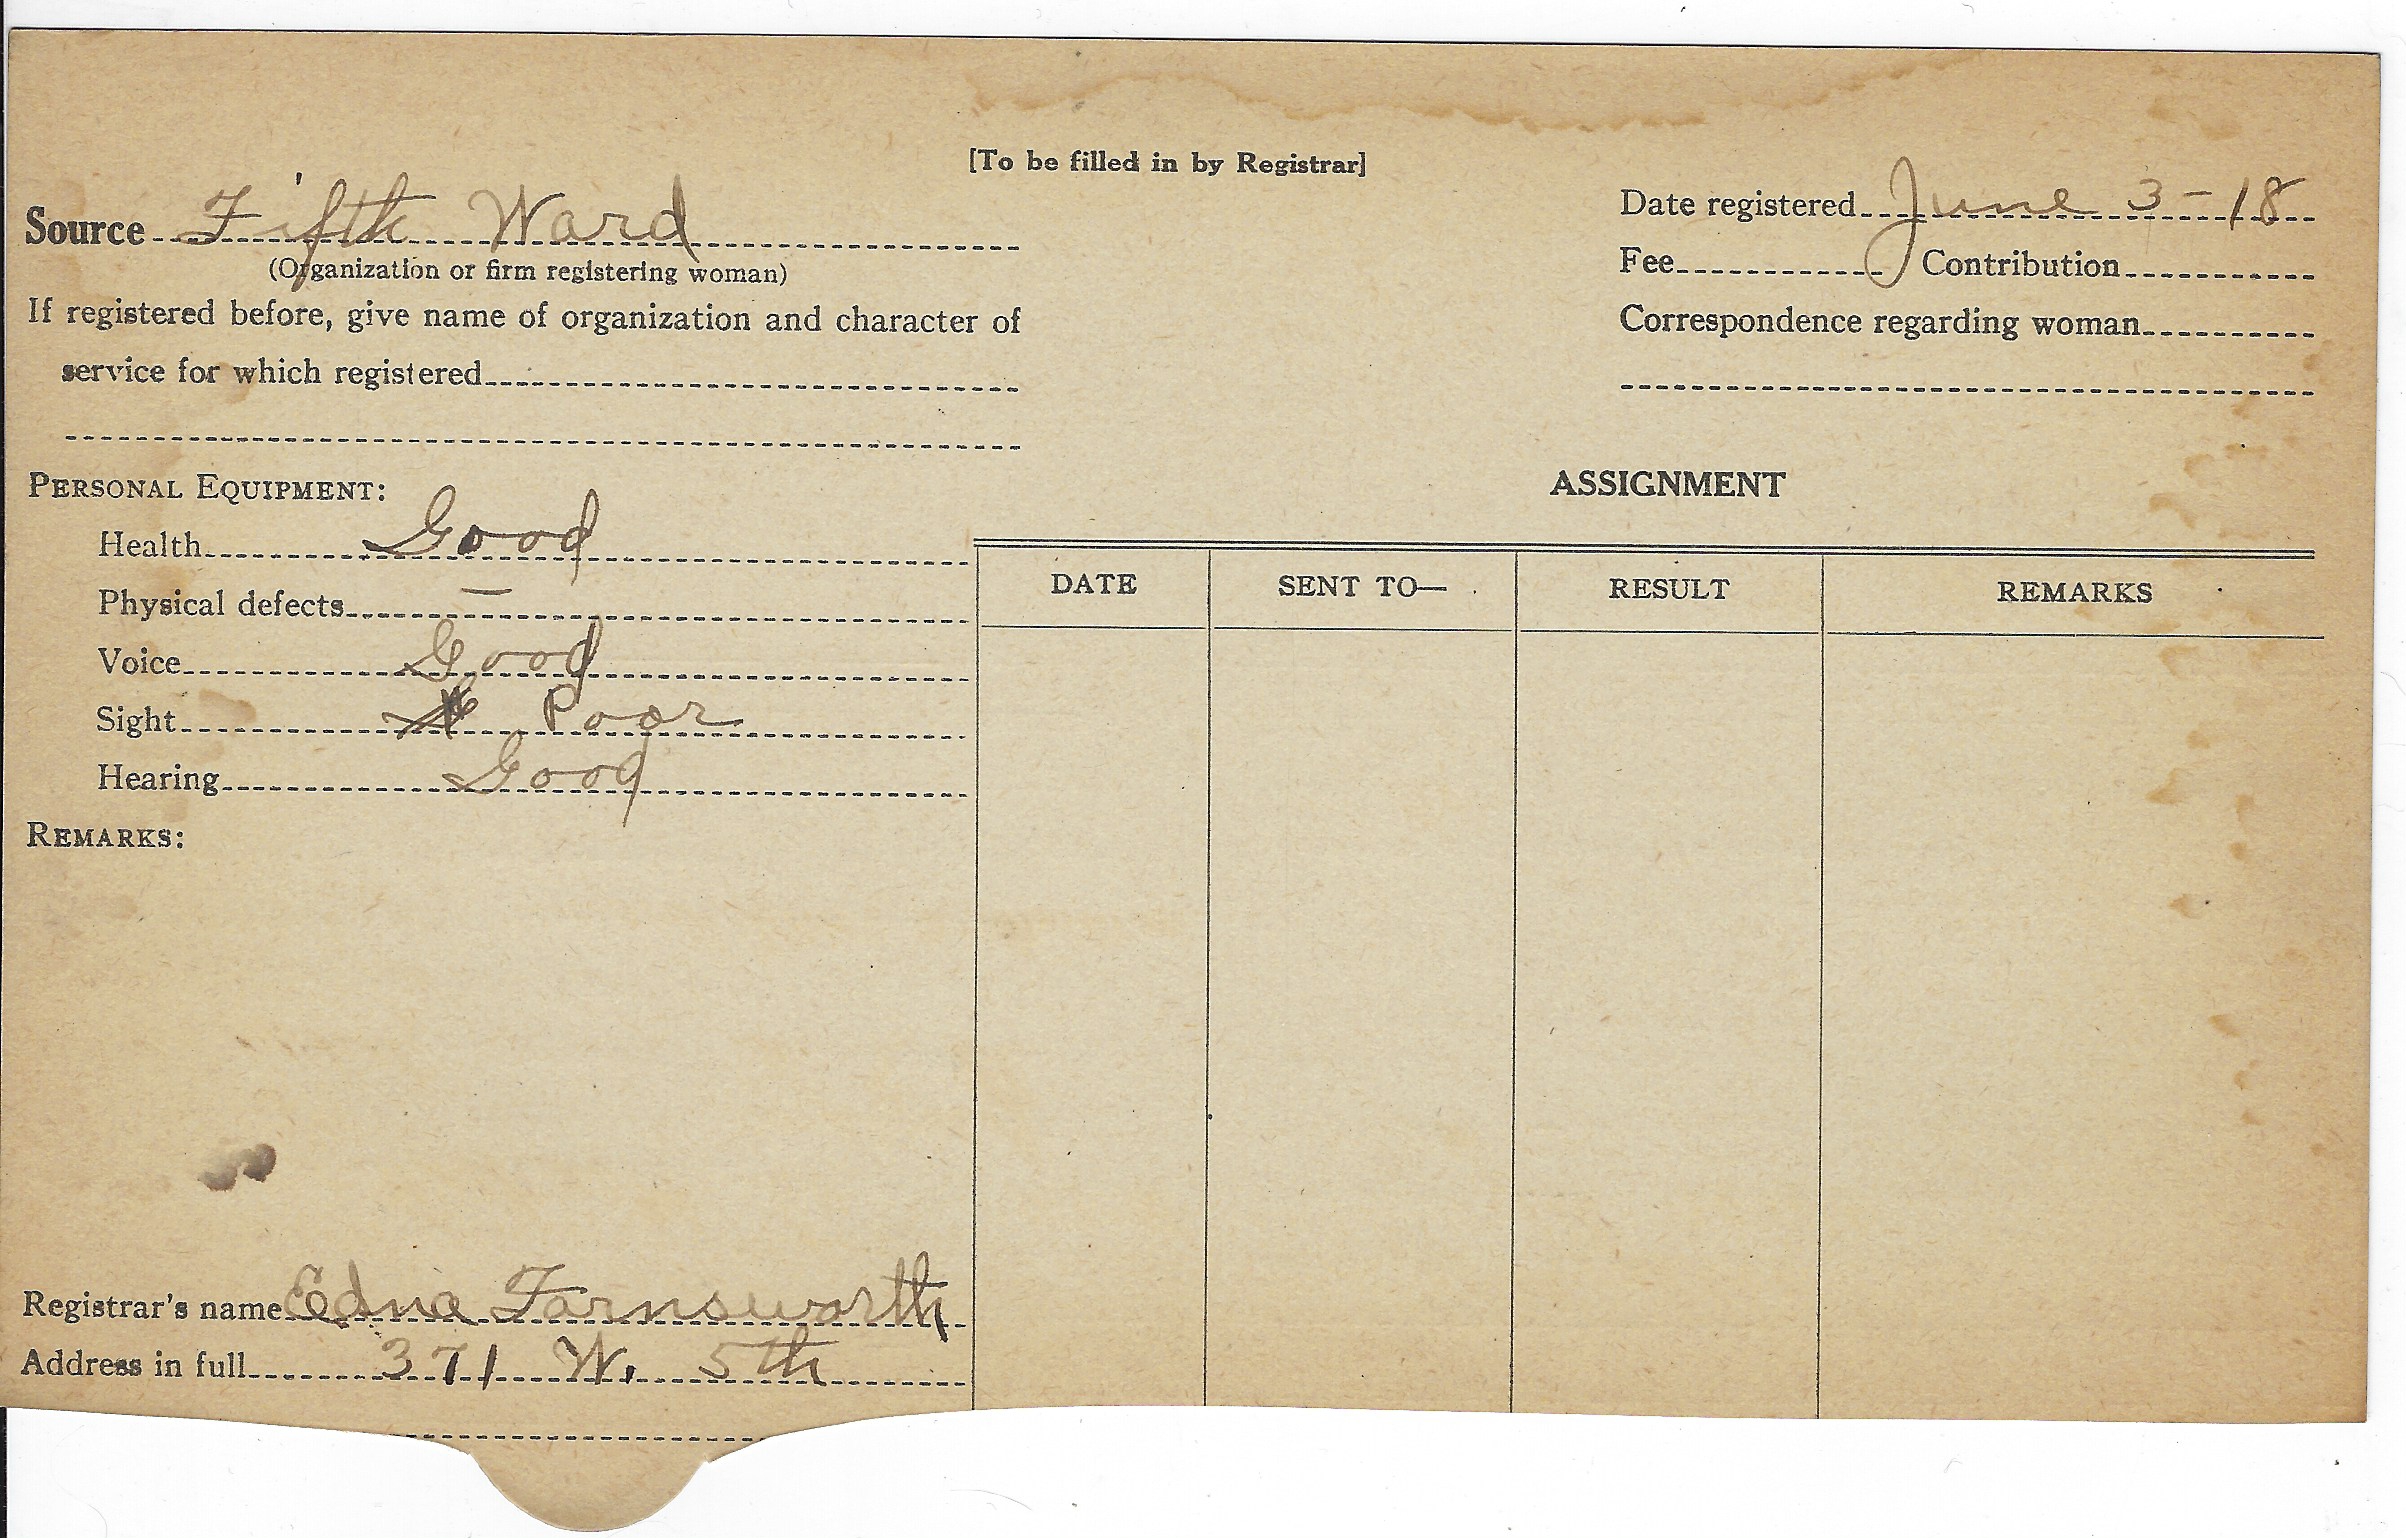 [To be filled in by Registrar]
Source Fifth Ward
(Organization or firm registering woman)
If registered before, give name of organization and character of
service for which registered
Date registered June 3-18
Fee Contribution
Correspondence regarding woman
PERSONAL EQUIPMENT:
Health Good
Physical defects —
Voice Good
Sight Poor
Hearing Good
REMARKS:
Registrar's name Edna Farnsworth
Address in full 371 W. 5th
ASSIGNMENT
DATE SENT TO— RESULT REMARKS